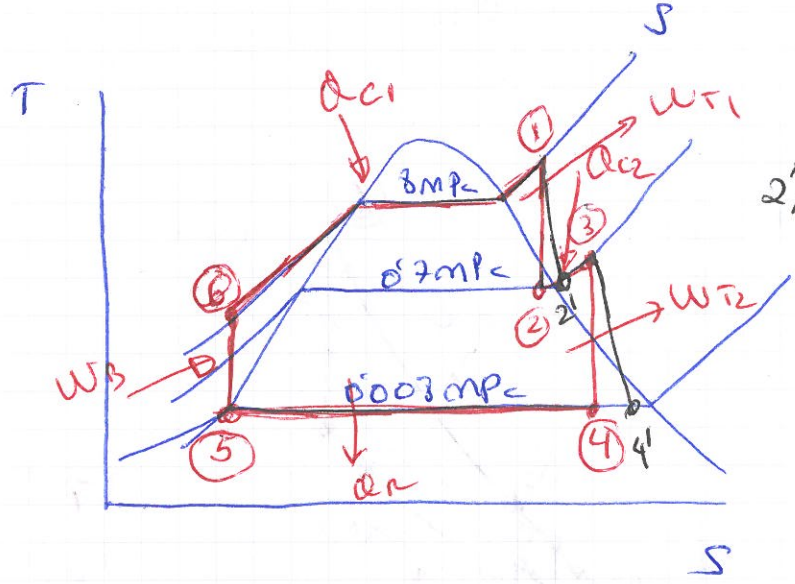 S
T
QC1
①
WT1
QC2
8MPa
2'
③
0'7MPa
⑥
②
2'
WT2
WB
0'008MPa
⑤
④
4'
QR
S